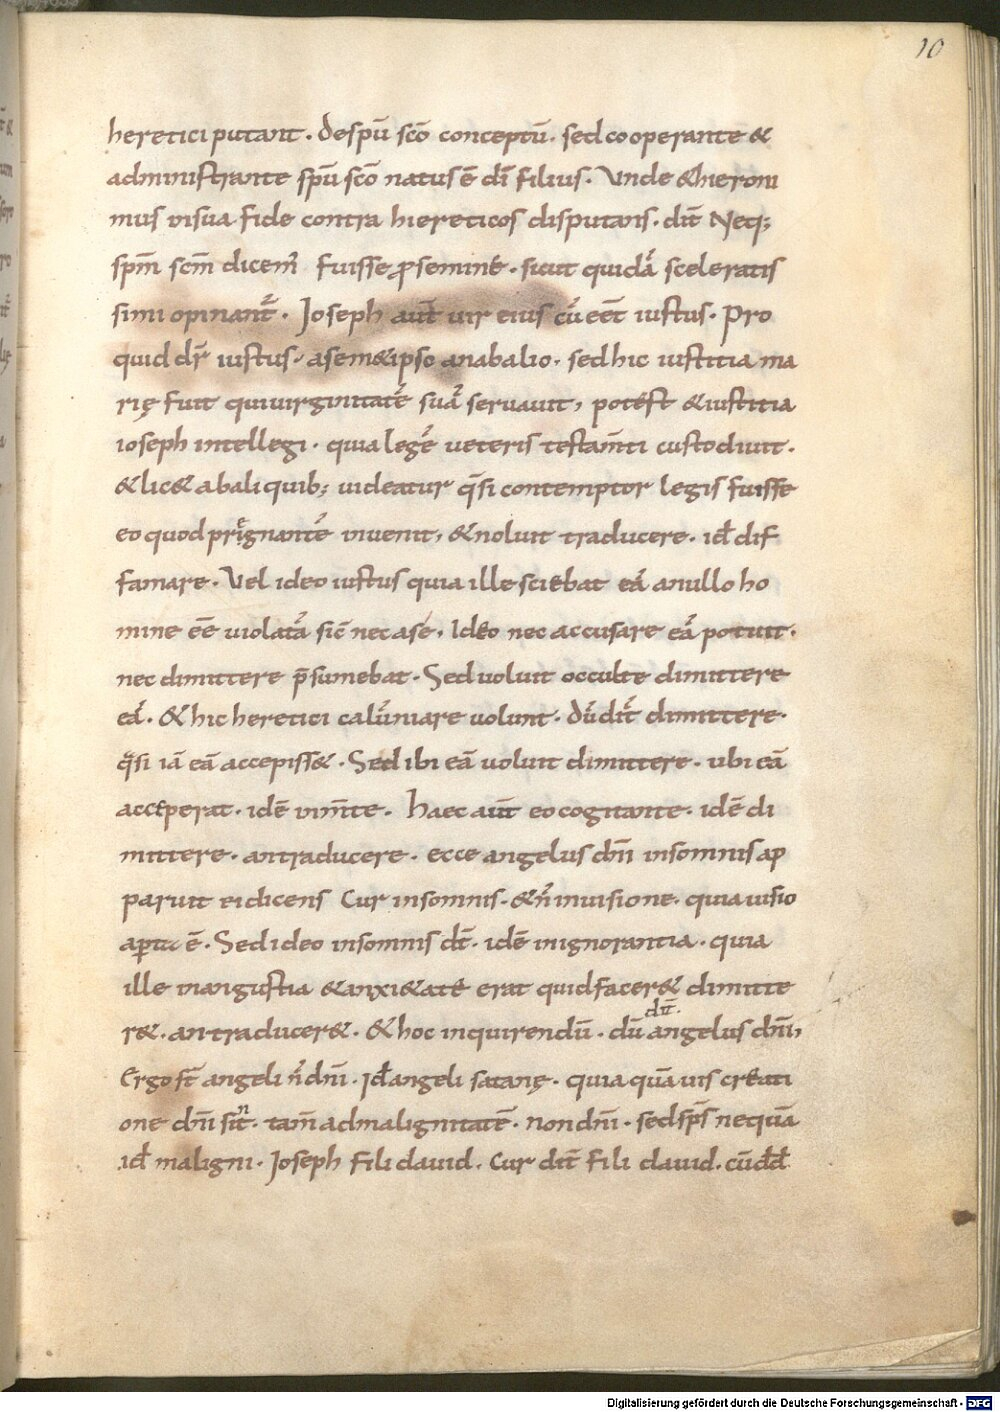 10
heretici putant . despū scō conceptū . sed cooperante &
administrante spū scō natus ē dī filius . Unde & hieroni
mus in sua fide contra hiereticos disputans . dīt Neq;
spm̄ scm̄ dicem̄ fuisse ꝓ semine . sicut quidā sceleratis
simi opinant̄ . Joseph aut̄ vir eius cū eēt iustus . Pro
quid dr̄ iustus . a sem&ipso an ab alio . sed hic iustitia ma
rię fuit qui virginitatē suā servavit , potest & iustitia
ioseph intellegi . quia legē veteris testam̄ti custodivit .
& lic& ab aliquib; videatur q̄si contemptor legis fuisse
eo quod prę̄gnantē invenit , & noluit traducere . id̄ dif
famare . Vel ideo iustus quia ille sciebat eā a nullo ho
mine eē violatā sic̄ nec a se , Ideo nec accusare eā potuit .
nec dimittere p̄sumebat . Sed voluit occulte dimittere
eā . & hic heretici calūniare volunt . dū dīt dimittere .
q̄si iā eā accepiss& . Sed ibi eā voluit dimittere . ubi eā
acceperat . idē in m̄te . haec aūt eo cogitante . idē di
mittere . an traducere . ecce angelus dn̄i in somnis ap
paruit ei dicens Cur in somnis . & n̄ in visione . quia visio
ē . Sed ideo in somnis dt̄ . idē in ignorantia . quia
ille in angustia & anxi&ate erat quid facer& dimitte
r& . an traducer& . & hoc inquirendū . dū angelus dn̄i,
dīt .
Ergo st̄ angeli n̄ dn̄i . Id̄ angeli satanę . quia quāvis creati
one dn̄i sint . tam̄ ad malignitatē . non dn̄i . sed sps̄ nequā
id̄ maligni . Joseph fili david . Cur dīt fili david . cū dd̄
Digitalisierung gefördert durch die Deutsche Forschungsgemeinschaft - DFG